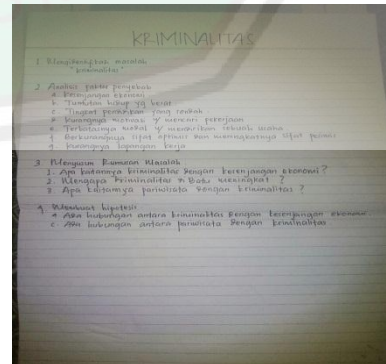 KRIMINALITAS
1. Mengidentifikasi masalah
"kriminalitas"
2. Analisis faktor penyebab
a. Kesenjangan ekonomi
b. Tuntutan hidup yg berat
c. Tingkat pendidikan yang rendah
d. Kurangnya motivasi u/ mencari pekerjaan
e. Terbatasnya modal u/ mendirikan sebuah usaha
f. Berkurangnya sifat optimis dan meningkatnya sifat pesimis
g. Kurangnya lapangan kerja
3. Menyusun Rumusan Masalah
1. Apa kaitannya kriminalitas dengan kesenjangan ekonomi?
2. Mengapa kriminalitas di meningkat?
3. Apa kaitannya pariwisata dengan kriminalitas?
4. Membuat hipotesis
a. Ada hubungan antara kriminalitas dengan kesenjangan ekonomi
c. Ada hubungan antara pariwisata dengan kriminalitas